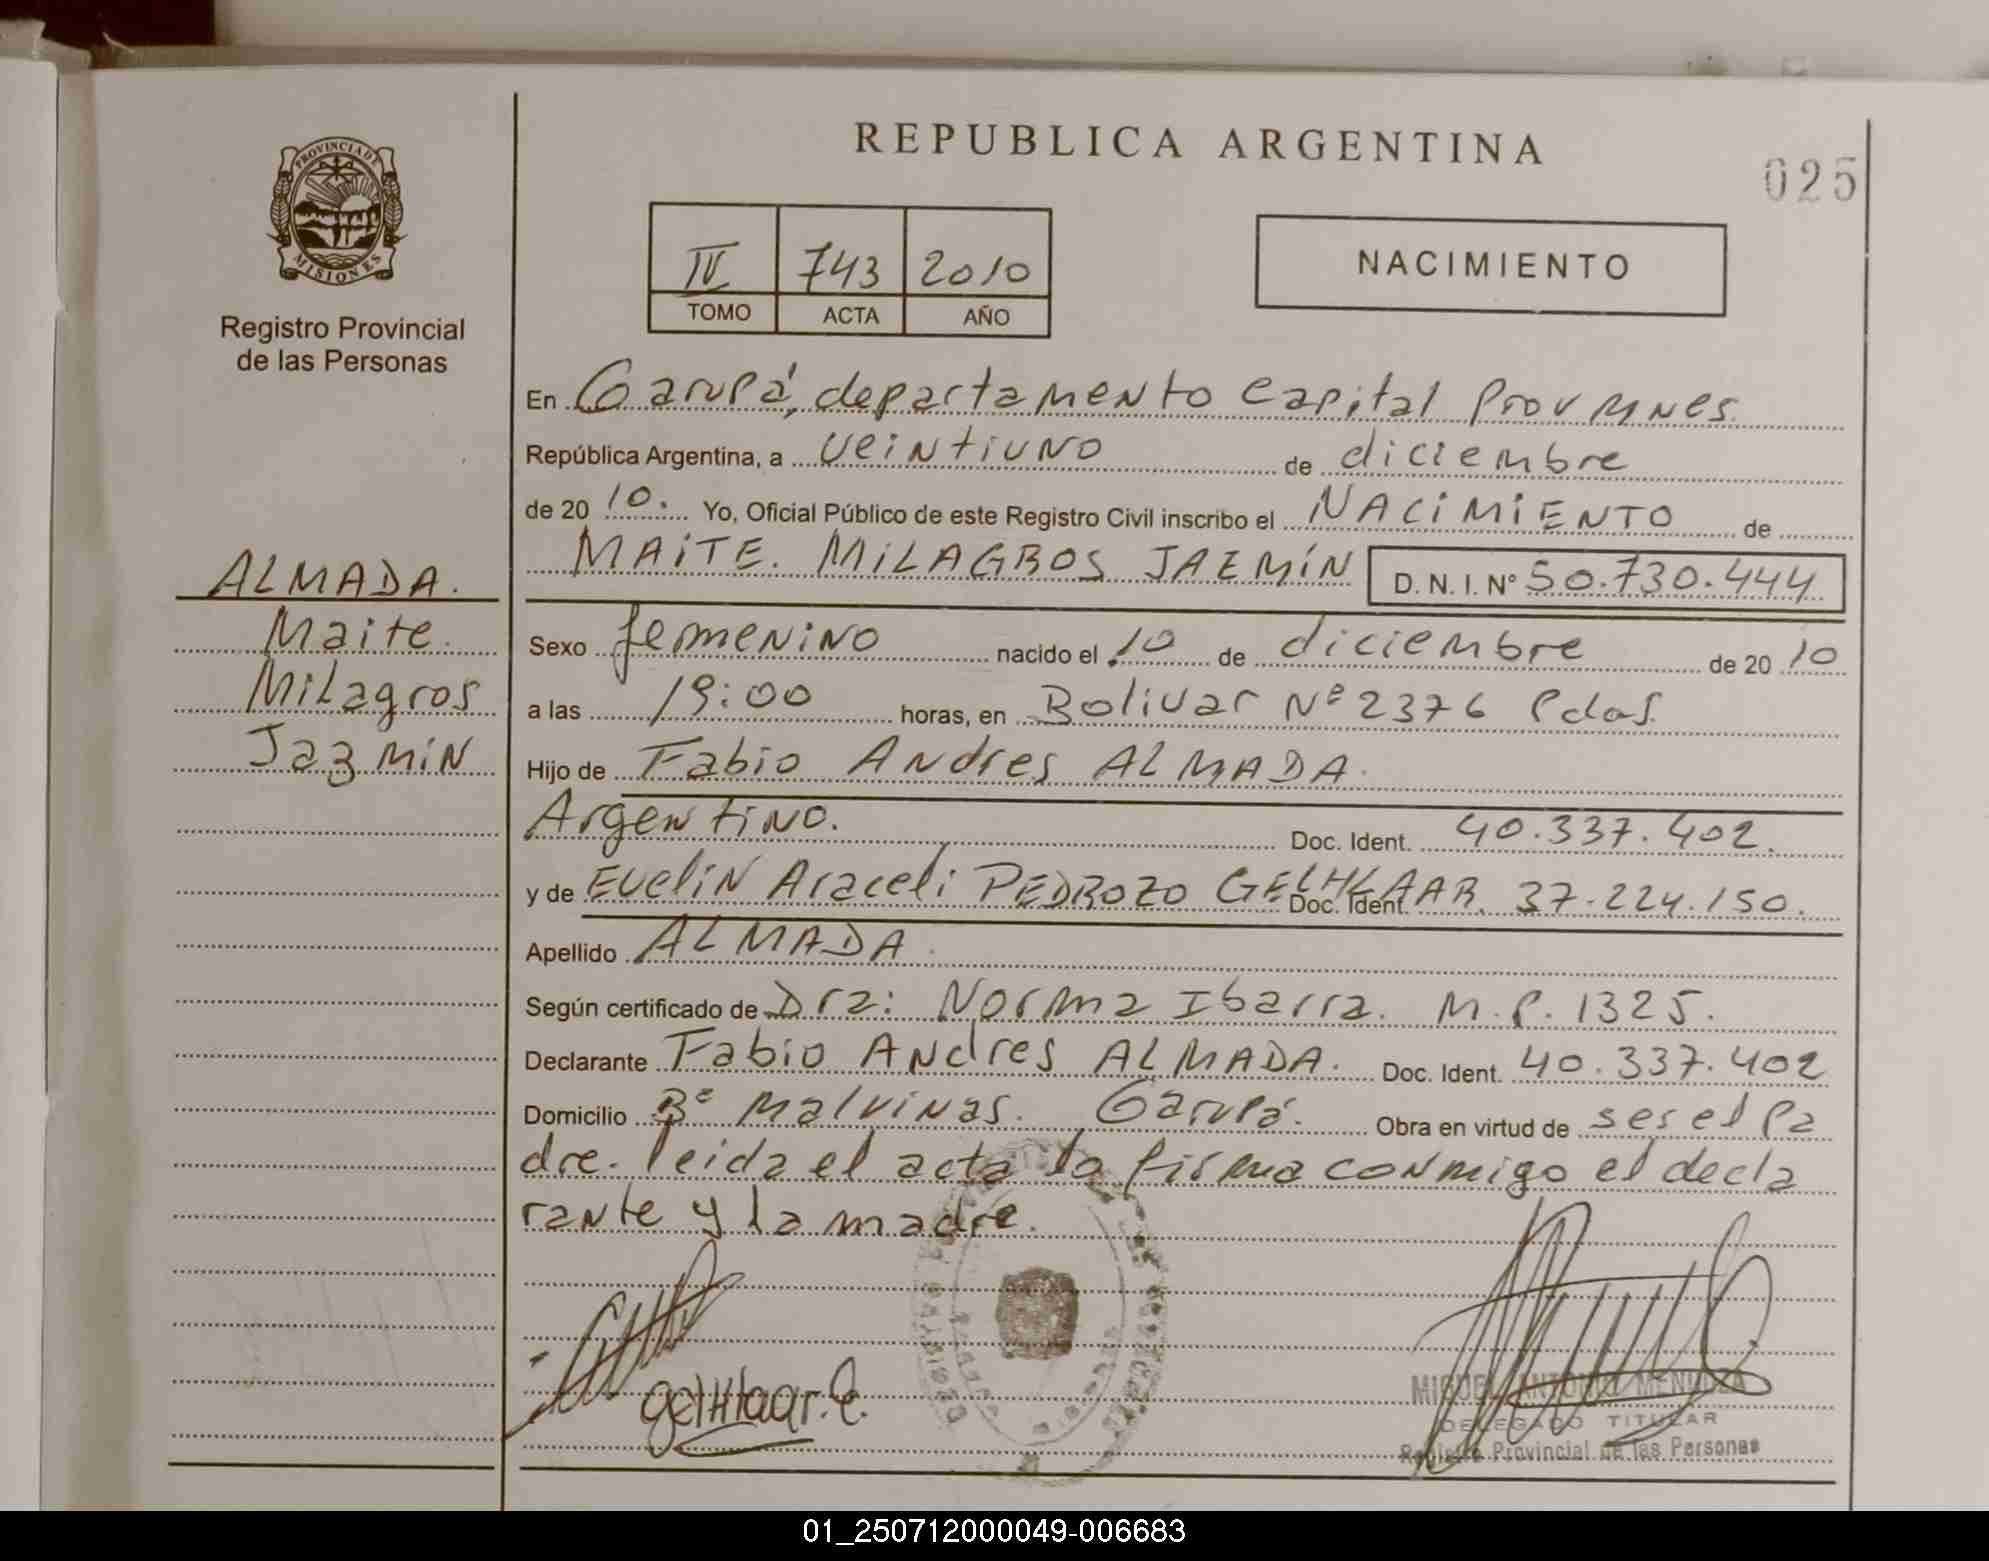 REPUBLICA ARGENTINA
025
PROVINCIA DE
MISIONES
Registro Provincial
de las Personas
IV 743 2010
TOMO ACTA AÑO
NACIMIENTO
En Garupá, departamento Capital Prov Mnes
República Argentina, a veintiuno de diciembre
de 20 10. Yo, Oficial Público de este Registro Civil inscribo el NACIMIENTO de
MAITE. MILAGROS JAZMÍN D. N. I. Nº 50.730.444
ALMADA.
Maite.
Milagros
Jazmin
Sexo femenino nacido el 10 de diciembre de 20 10
a las 19:00 horas, en Bolivar Nº 2376 Pdas.
Hijo de Fabio Andres ALMADA.
Argentino. Doc. Ident. 40.337.402.
y de Evelin Araceli PEDROZO GELHLAAR. Doc. Ident. 37.224.150.
Apellido ALMADA.
Según certificado de Dra: Norma Ibarra. M.P. 1325.
Declarante Fabio Andres ALMADA. Doc. Ident. 40.337.402
Domicilio Bº Malvinas. Garupá. Obra en virtud de ser el pa
dre. leida el acta la firma conmigo el decla
rante y la madre.
gelHlaar. e.
MIGUEL ANTONIO MENDOZA
DELEGADO TITULAR
Registro Provincial de las Personas
01_250712000049-006683